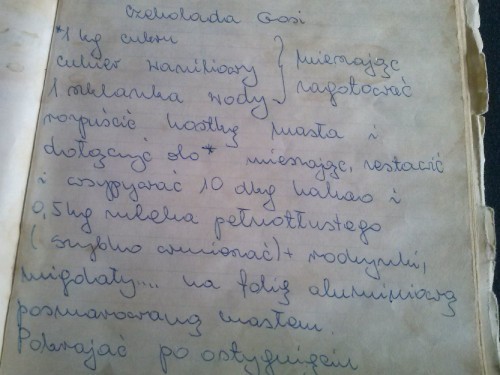 Czekolada Gosi
*1 kg cukru
cukier waniliowy } mieszając
1 szklanka wody } zagotować
rozpuścić kostkę masła i
dołączyć do * mieszając, zestawić
i wsypywać 10 dkg kakao i
0,5 kg mleka pełnotłustego
(szybko wmieszać) + rodzynki,
migdały.... na folię aluminiową
posmarowaną masłem.
Pokrajać po ostygnięciu